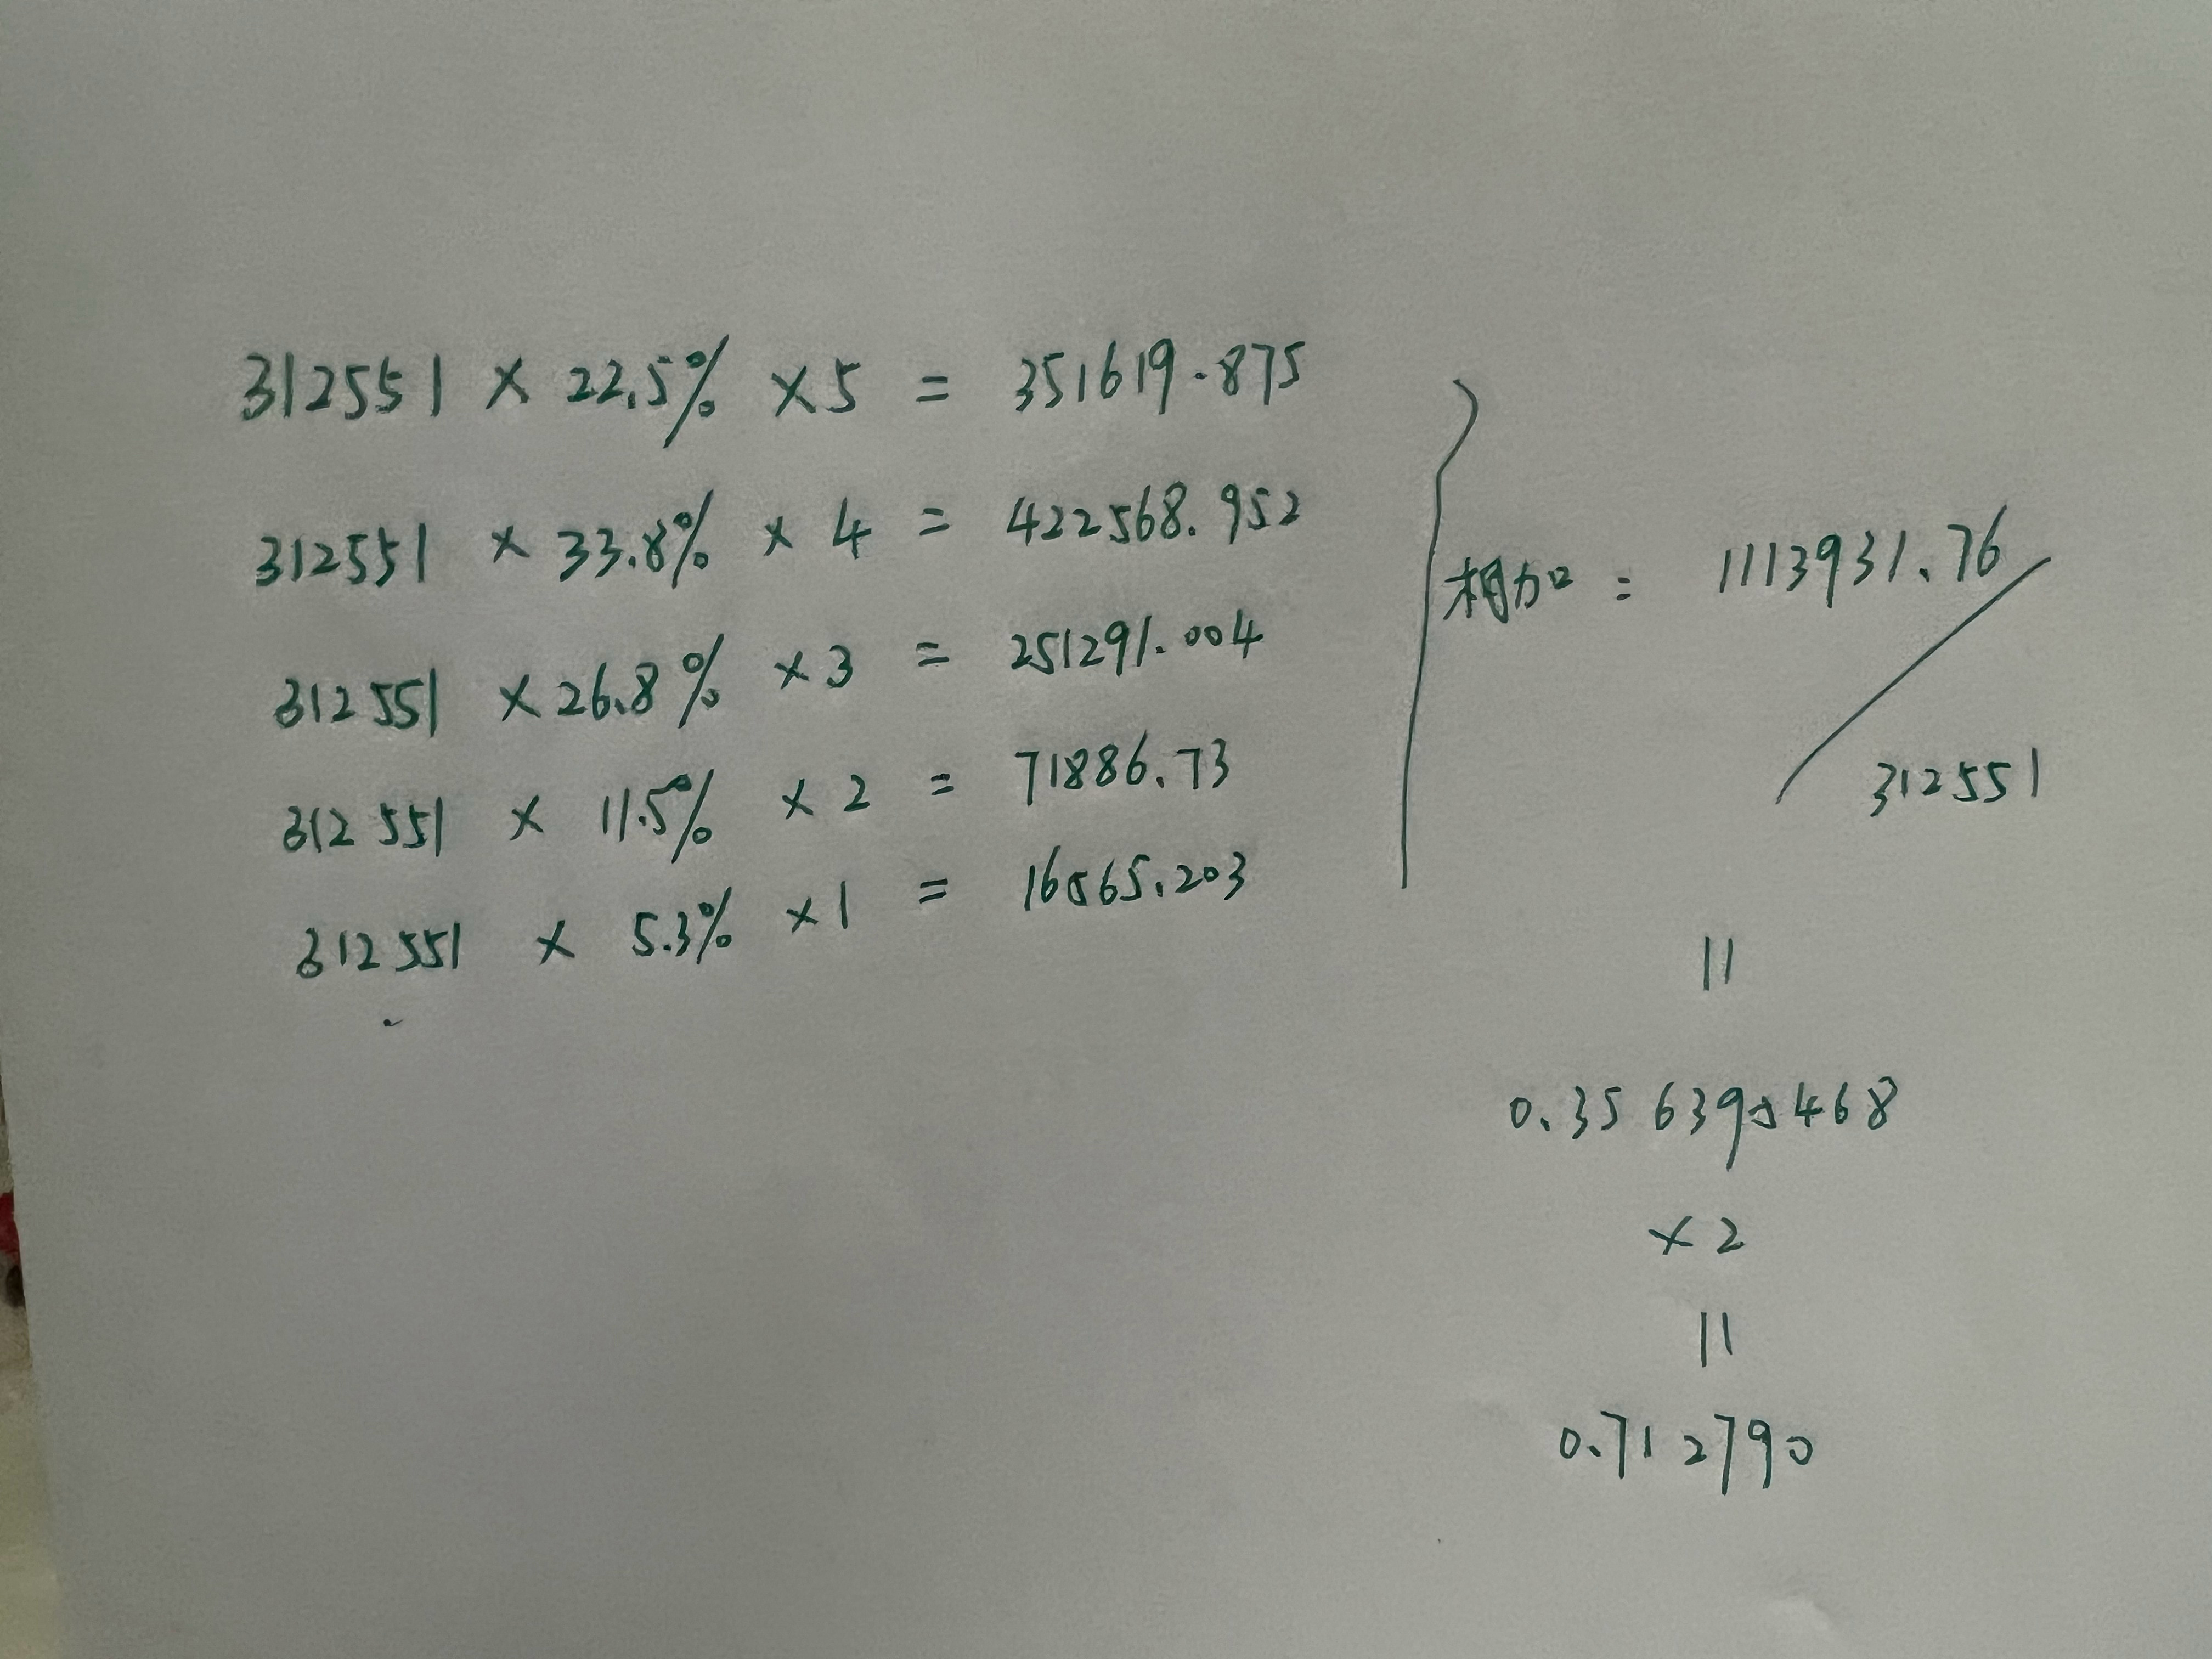 312551 × 22.5% × 5 = 351619.875
312551 × 33.8% × 4 = 422568.952
312551 × 26.8% × 3 = 251291.004
312551 × 11.5% × 2 = 71886.73
312551 × 5.3% × 1 = 16565.203
相加 : 1113931.76
/
312551
=
0.356395468
× 2
=
0.712790